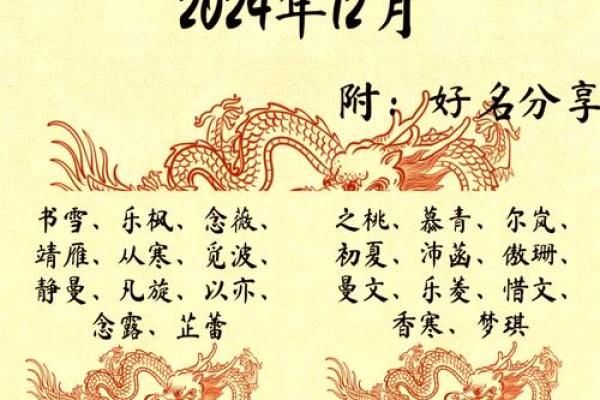 2024年12月
附：好名分享
书雪、乐枫、念薇、
靖雁、从寒、觅波、
静曼、凡旋、以亦、
念露、芷蕾
之桃、慕青、尔岚、
初夏、沛菡、傲珊、
曼文、乐菱、惜文、
香寒、梦琪